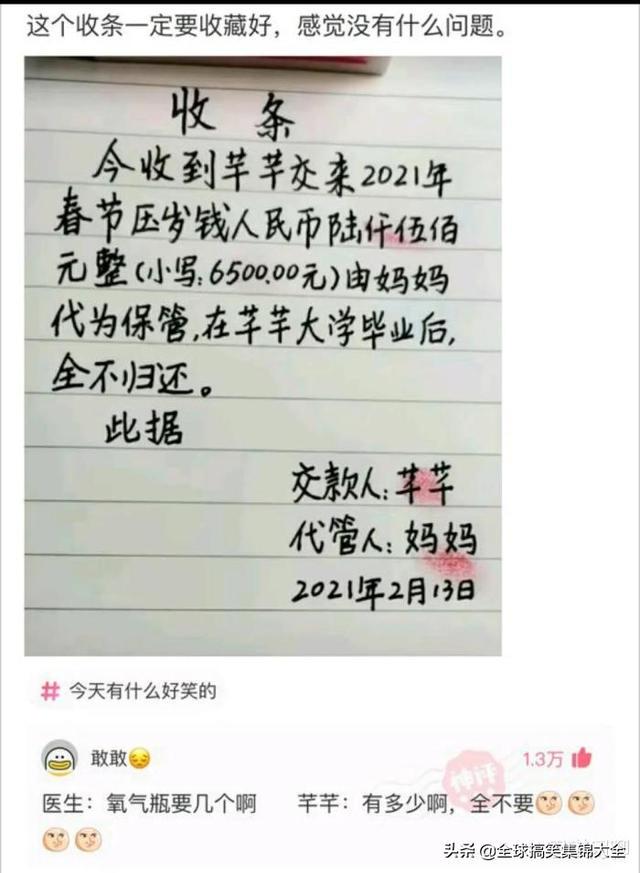 这个收条一定要收藏好，感觉没有什么问题。
收 条
今收到芊芊交来2021年
春节压岁钱人民币陆仟伍佰
元整(小写:6500.00元)由妈妈
代为保管,在芊芊大学毕业后,
全不归还。
此据
交款人:芊芊
代管人:妈妈
2021年2月13日
# 今天有什么好笑的
敢敢😔
1.3万
神评
医生：氧气瓶要几个啊 芊芊：有多少啊，全不要
头条 @全球搞笑集锦大全